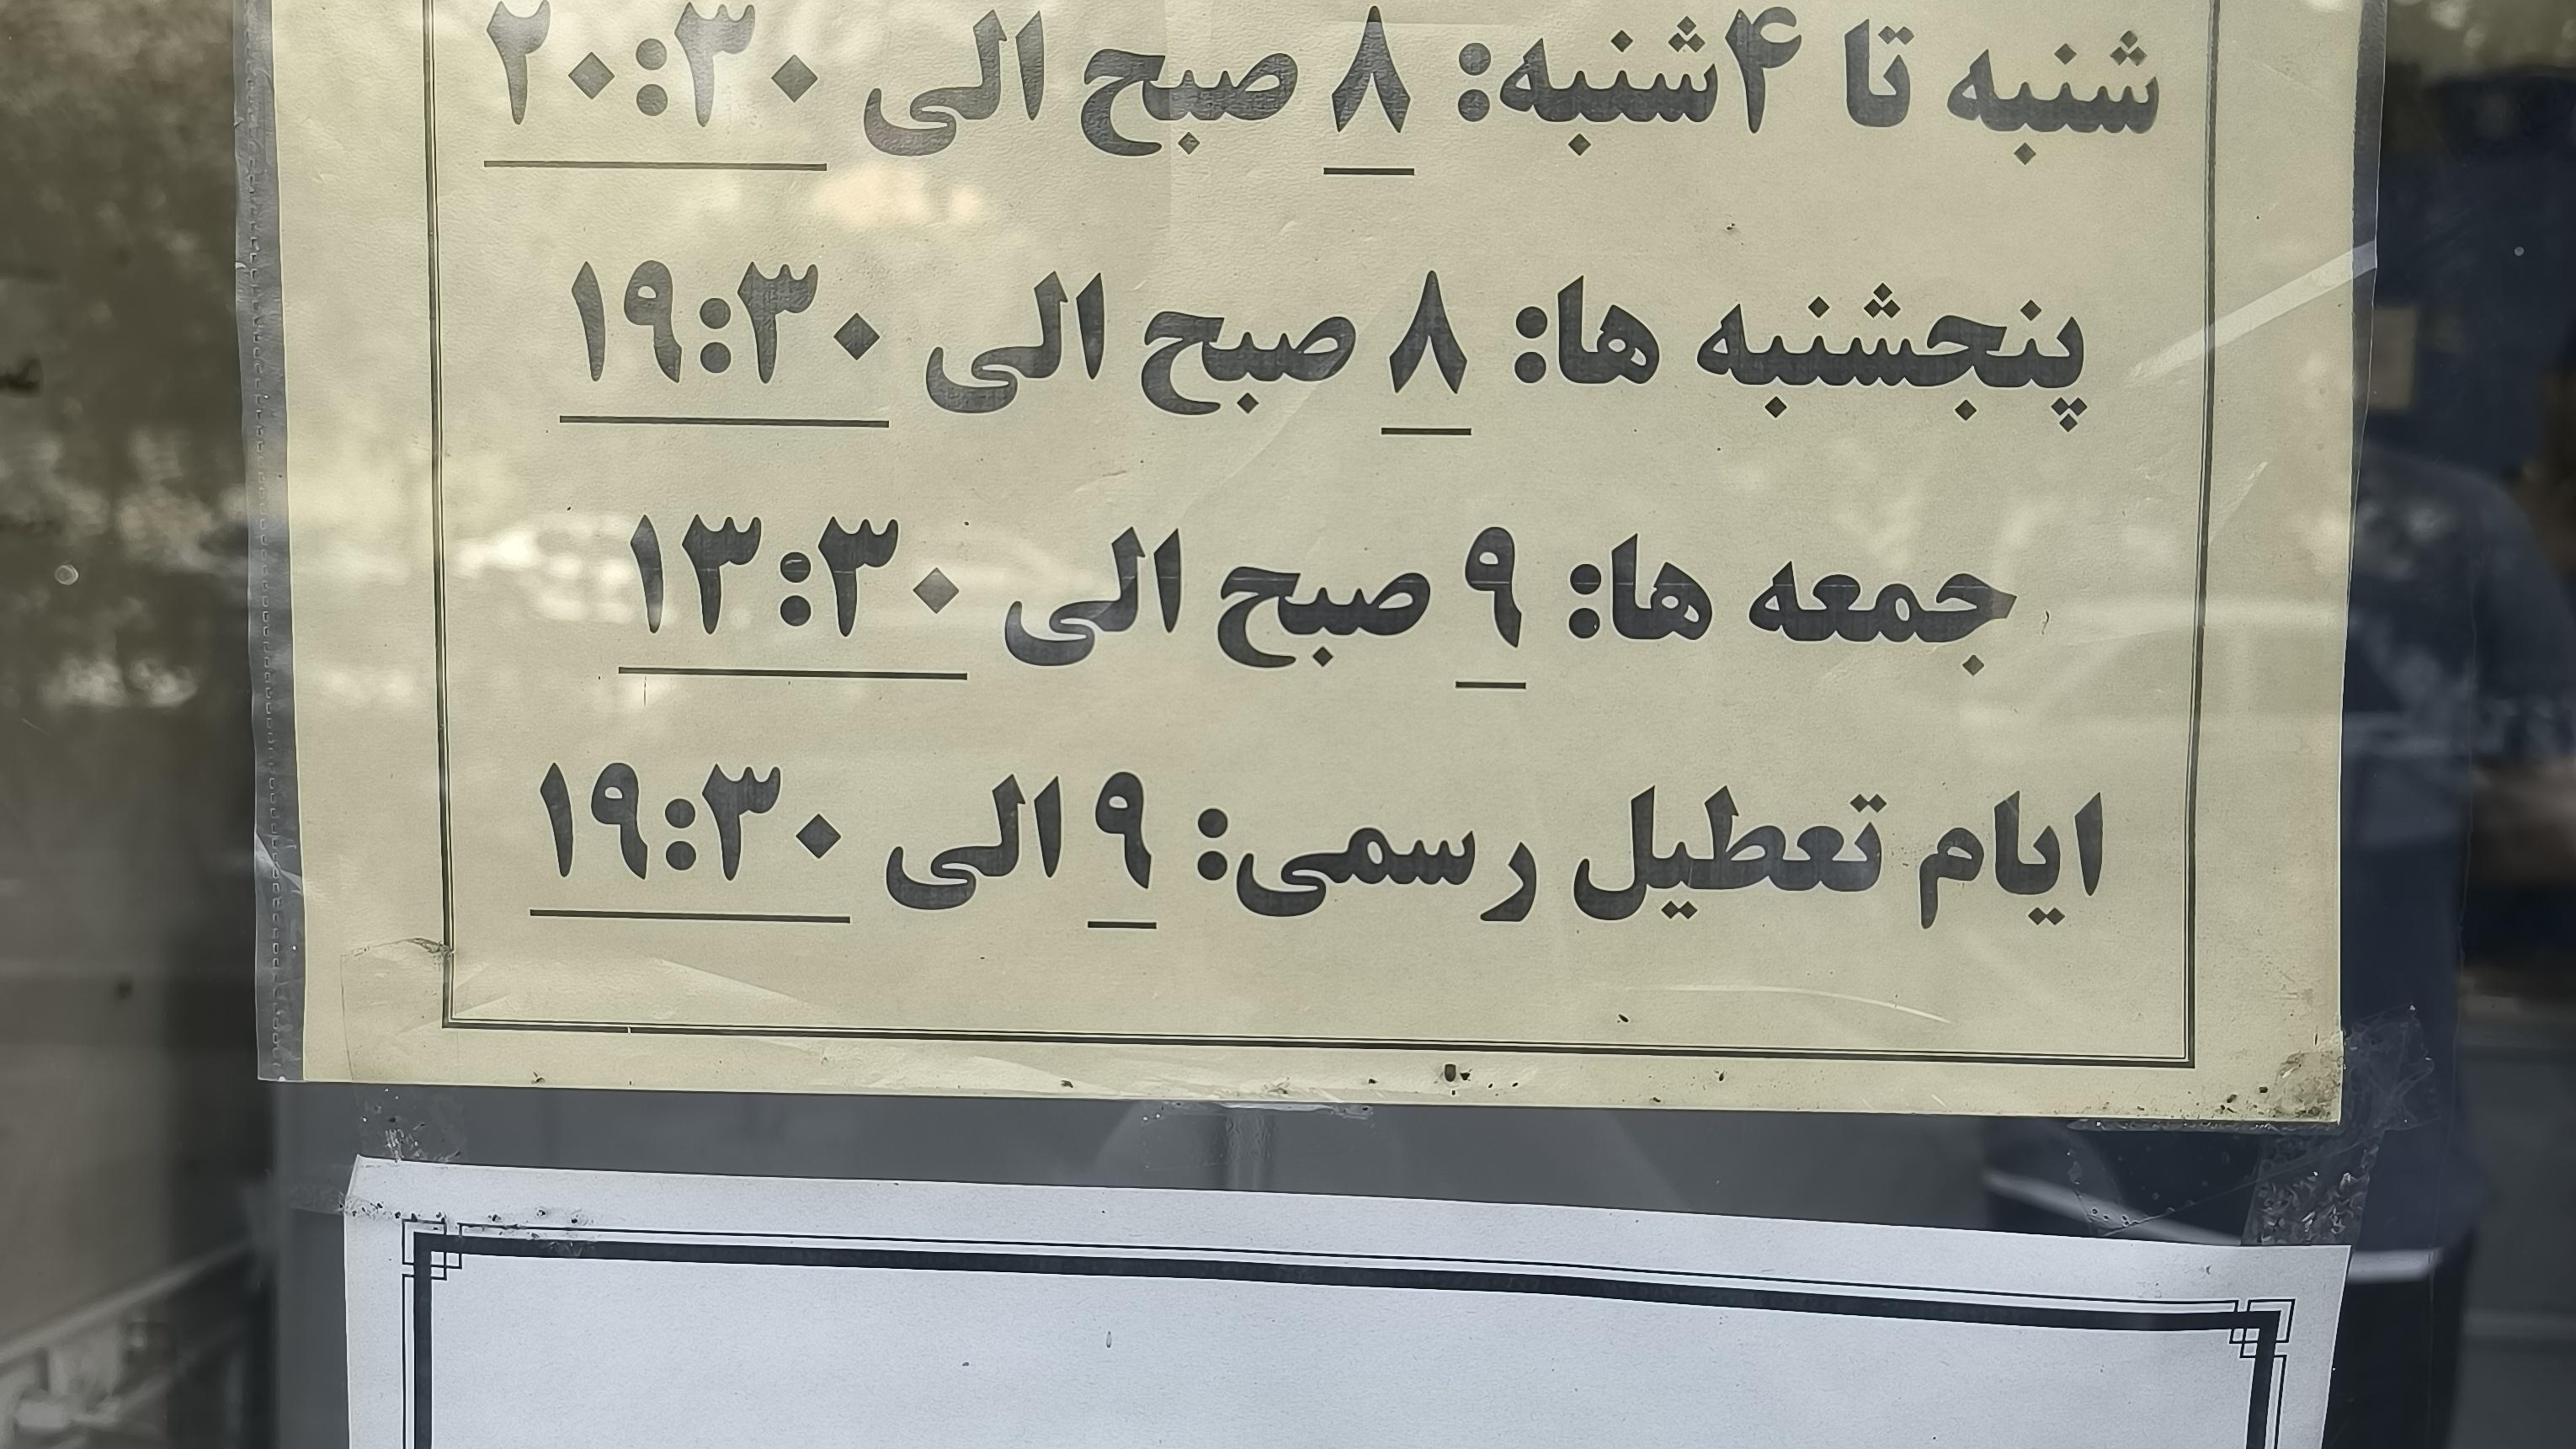 شنبه تا ۴شنبه: ۸ صبح الی ۲۰:۳۰
پنجشنبه ها: ۸ صبح الی ۱۹:۳۰
جمعه ها: ۹ صبح الی ۱۳:۳۰
ایام تعطیل رسمی: ۹ الی ۱۹:۳۰